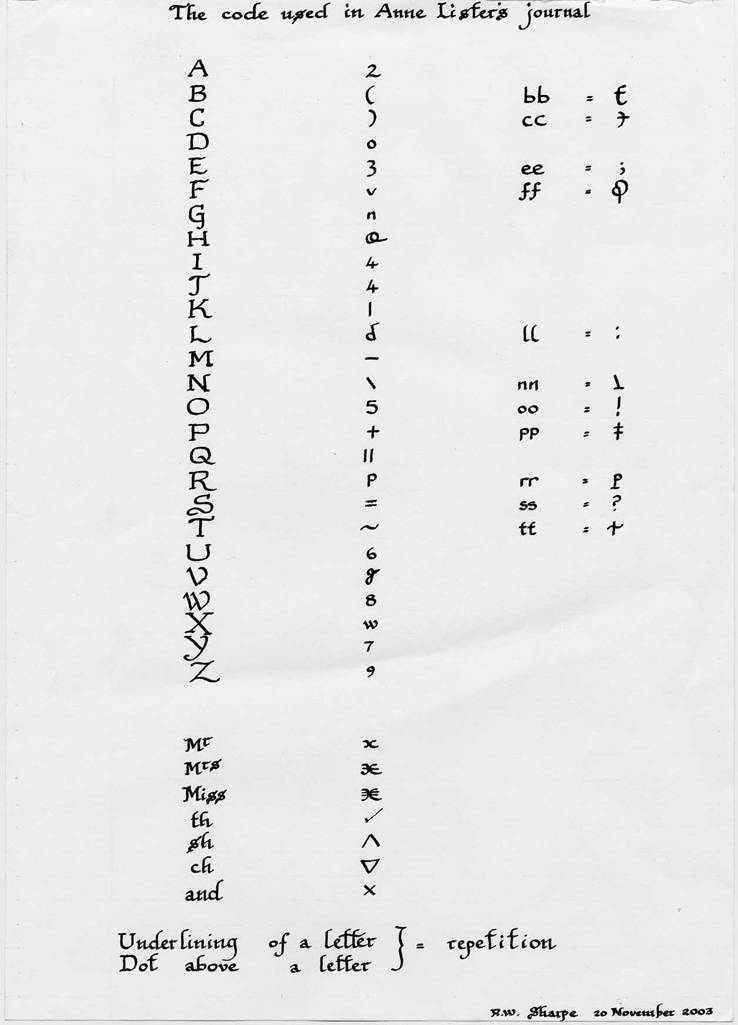 The code used in Anne Lister's journal
A 2
B ( bb = ƭ
C ) cc = ⥽
D o
E 3 ee = ;
F v ff = φ
G n
H
I 4
J 4
K |
L d ll = :
M –
N \ nn =
O 5 oo = !
P + pp = ‡
Q ||
R p rr =
S = ss = ?
T ~ tt =
U 6
V g
W 8
X w
Y 7
Z 9
Mr x
Mrs
Miss
th ✓
sh ^
ch ▽
and ×
Underlining of a letter } = repetition
Dot above a letter
R.W. Sharpe 20 November 2003